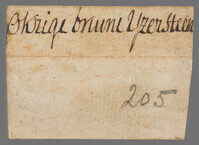 Okrige bruune Yzersteen
205